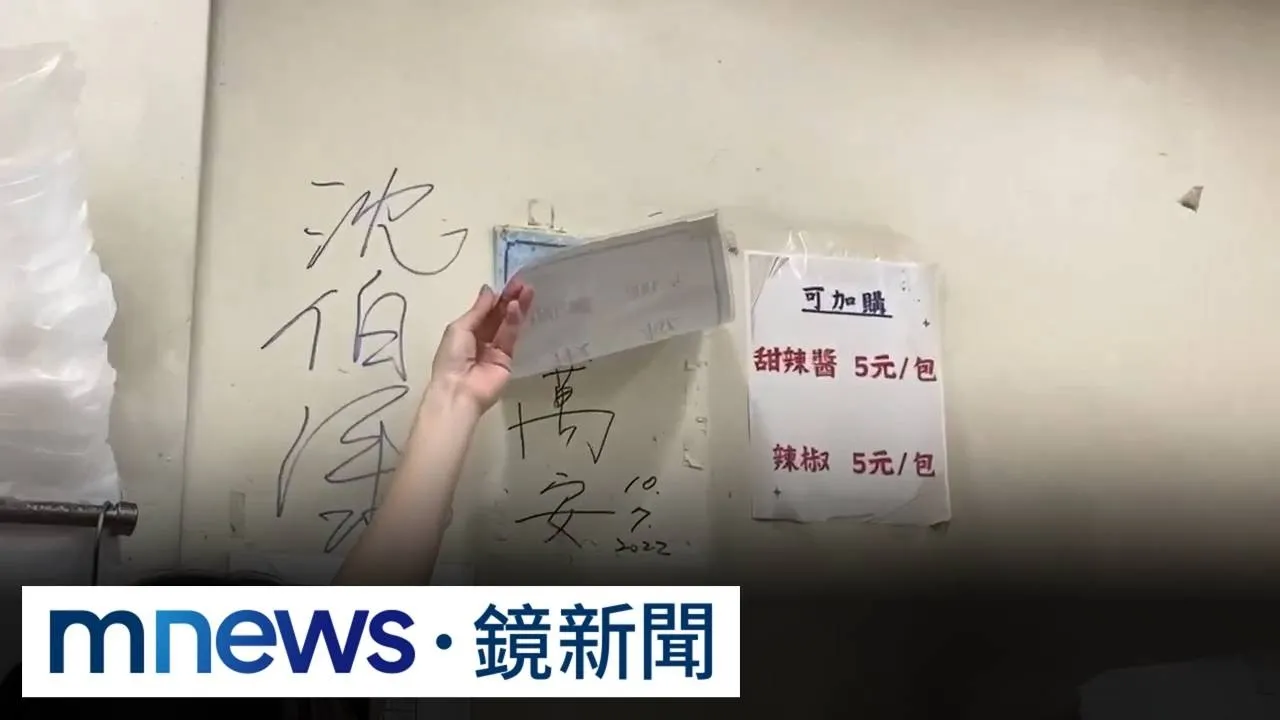 沈
伯
洋
萬
安
10.
7.
2022
可加購
甜辣醬 5元/包
辣椒 5元/包
mnews·鏡新聞